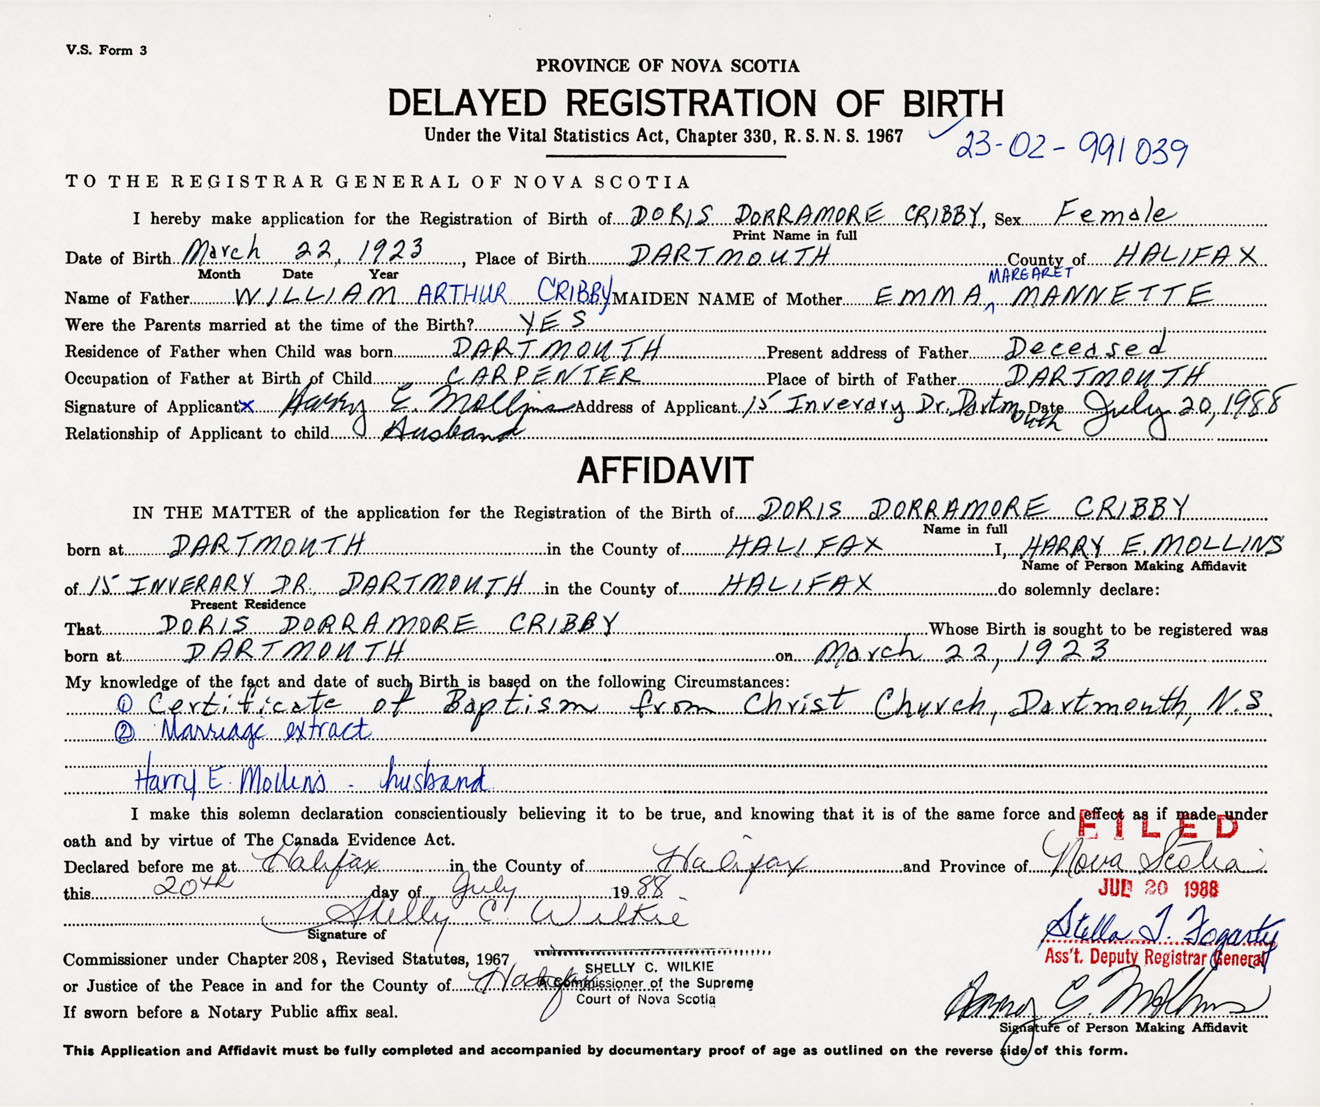 V.S. Form 3
PROVINCE OF NOVA SCOTIA
DELAYED REGISTRATION OF BIRTH
Under the Vital Statistics Act, Chapter 330, R. S. N. S. 1967
23-02-991039
TO THE REGISTRAR GENERAL OF NOVA SCOTIA
I hereby make application for the Registration of Birth of DORIS DORRAMORE CRIBBY, Sex Female
Print Name in full
Date of Birth March 22, 1923, Place of Birth DARTMOUTH County of HALIFAX
Month Date Year
MARGARET
Name of Father WILLIAM ARTHUR CRIBBY MAIDEN NAME of Mother EMMA ^ MANNETTE
Were the Parents married at the time of the Birth? YES
Residence of Father when Child was born DARTMOUTH Present address of Father Deceased
Occupation of Father at Birth of Child CARPENTER Place of birth of Father DARTMOUTH
Signature of Applicant X Harry E. Mollins Address of Applicant 15 Inverary Dr. Dartmouth Date July 20, 1988
Relationship of Applicant to child Husband
AFFIDAVIT
IN THE MATTER of the application for the Registration of the Birth of DORIS DORRAMORE CRIBBY
Name in full
born at DARTMOUTH in the County of HALIFAX I, HARRY E. MOLLINS
Name of Person Making Affidavit
of 15 INVERARY DR. DARTMOUTH in the County of HALIFAX do solemnly declare:
Present Residence
That DORIS DORRAMORE CRIBBY Whose Birth is sought to be registered was
born at DARTMOUTH on March 22, 1923
My knowledge of the fact and date of such Birth is based on the following Circumstances:
① Certificate of Baptism from Christ Church, Dartmouth, N.S.
② Marriage extract
Harry E. Mollins - husband
I make this solemn declaration conscientiously believing it to be true, and knowing that it is of the same force and effect as if made under
FILED
oath and by virtue of The Canada Evidence Act.
Declared before me at Halifax in the County of Halifax and Province of Nova Scotia
this 20th day of July 1988
JUL 20 1988
Shelly C. Wilkie
Signature of
Stella T. Fogarty
Commissioner under Chapter 208, Revised Statutes, 1967
Ass't. Deputy Registrar General
SHELLY C. WILKIE
or Justice of the Peace in and for the County of Halifax
A Commissioner of the Supreme
Court of Nova Scotia
Harry E. Mollins
If sworn before a Notary Public affix seal.
Signature of Person Making Affidavit
This Application and Affidavit must be fully completed and accompanied by documentary proof of age as outlined on the reverse side of this form.